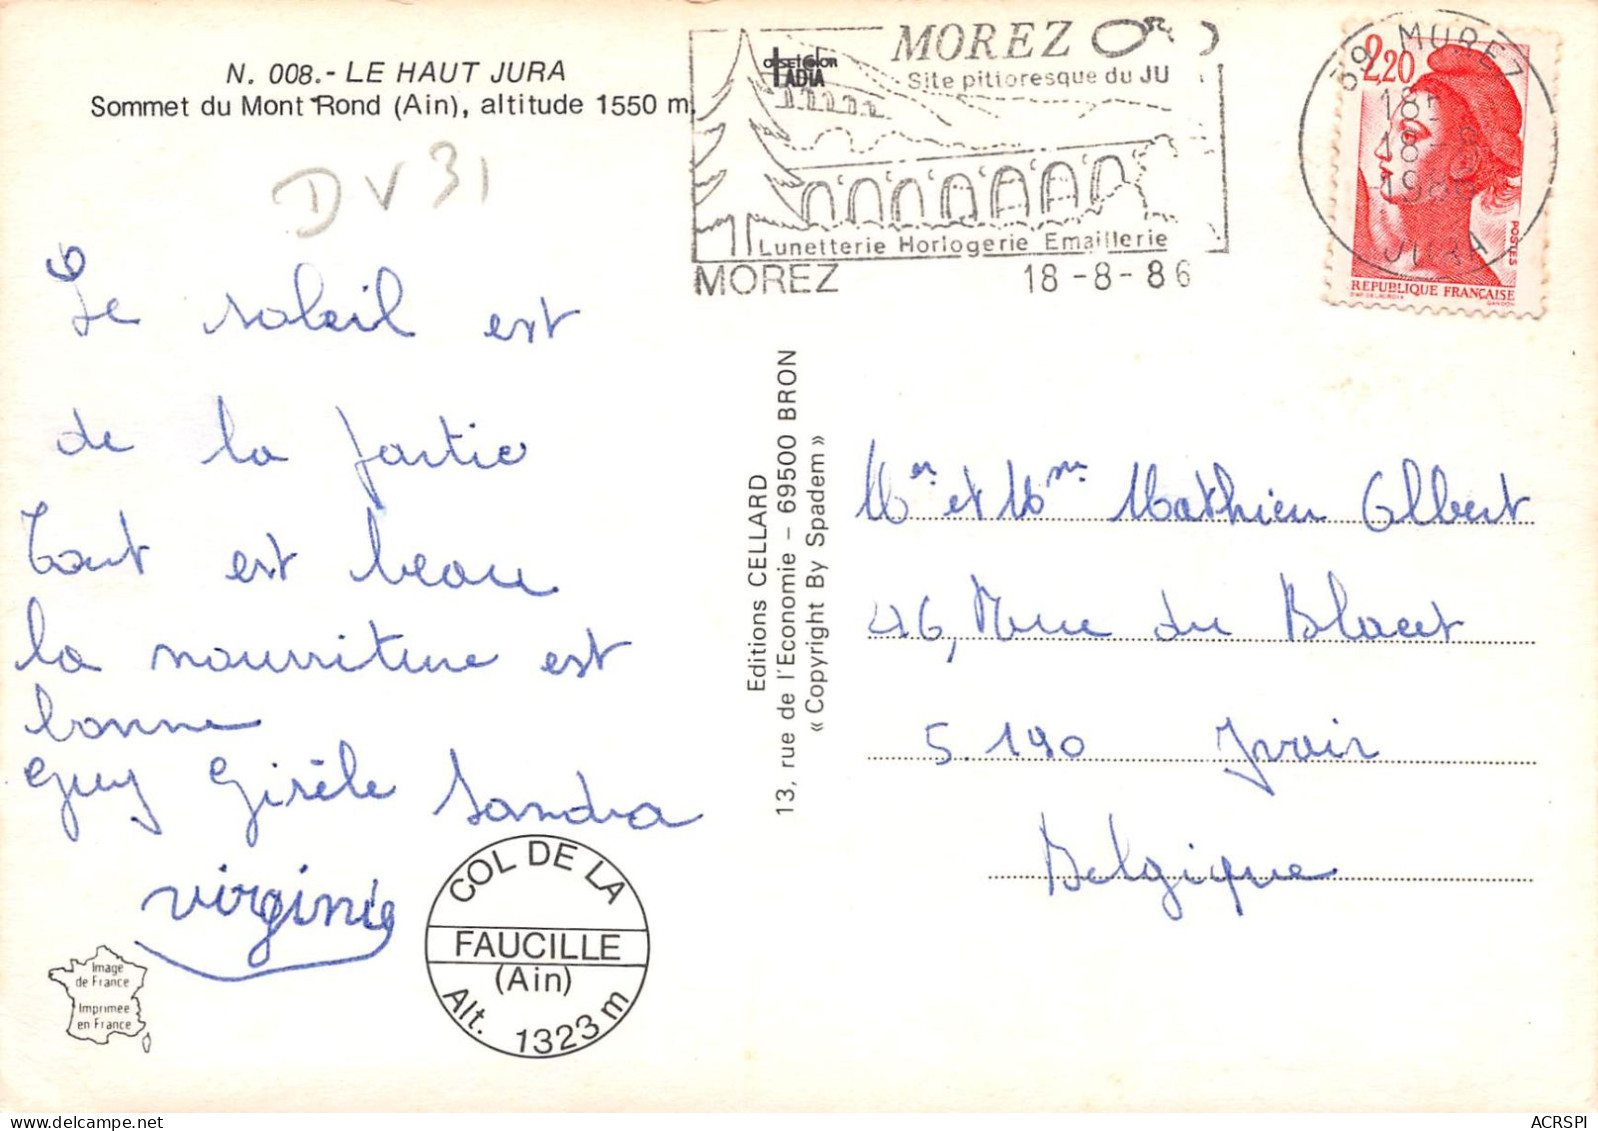 N. 008.- LE HAUT JURA
Sommet du Mont Rond (Ain), altitude 1550 m.
DV31
Le soleil est
de la partie
Tout est beau
la nourriture est
bonne
Guy Gisèle Sandra
virginie
COL DE LA
FAUCILLE
(Ain)
Alt. 1323 m
Image
de France
Imprimée
en France
Editions CELLARD
13, rue de l'Economie - 69500 BRON
« Copyright By Spadem »
offsetcolor
IADIA
MOREZ
Site pittoresque du JU
Lunetterie Horlogerie Emaillerie
MOREZ 18-8-86
39 MOREZ
18-8
1986
JURA
2,20
POSTES
REPUBLIQUE FRANÇAISE
GANDON
Mr et Mme Mathieu Albert
46, Rue du Blacet
5.190 Yvoir
Belgique
ACRSPI